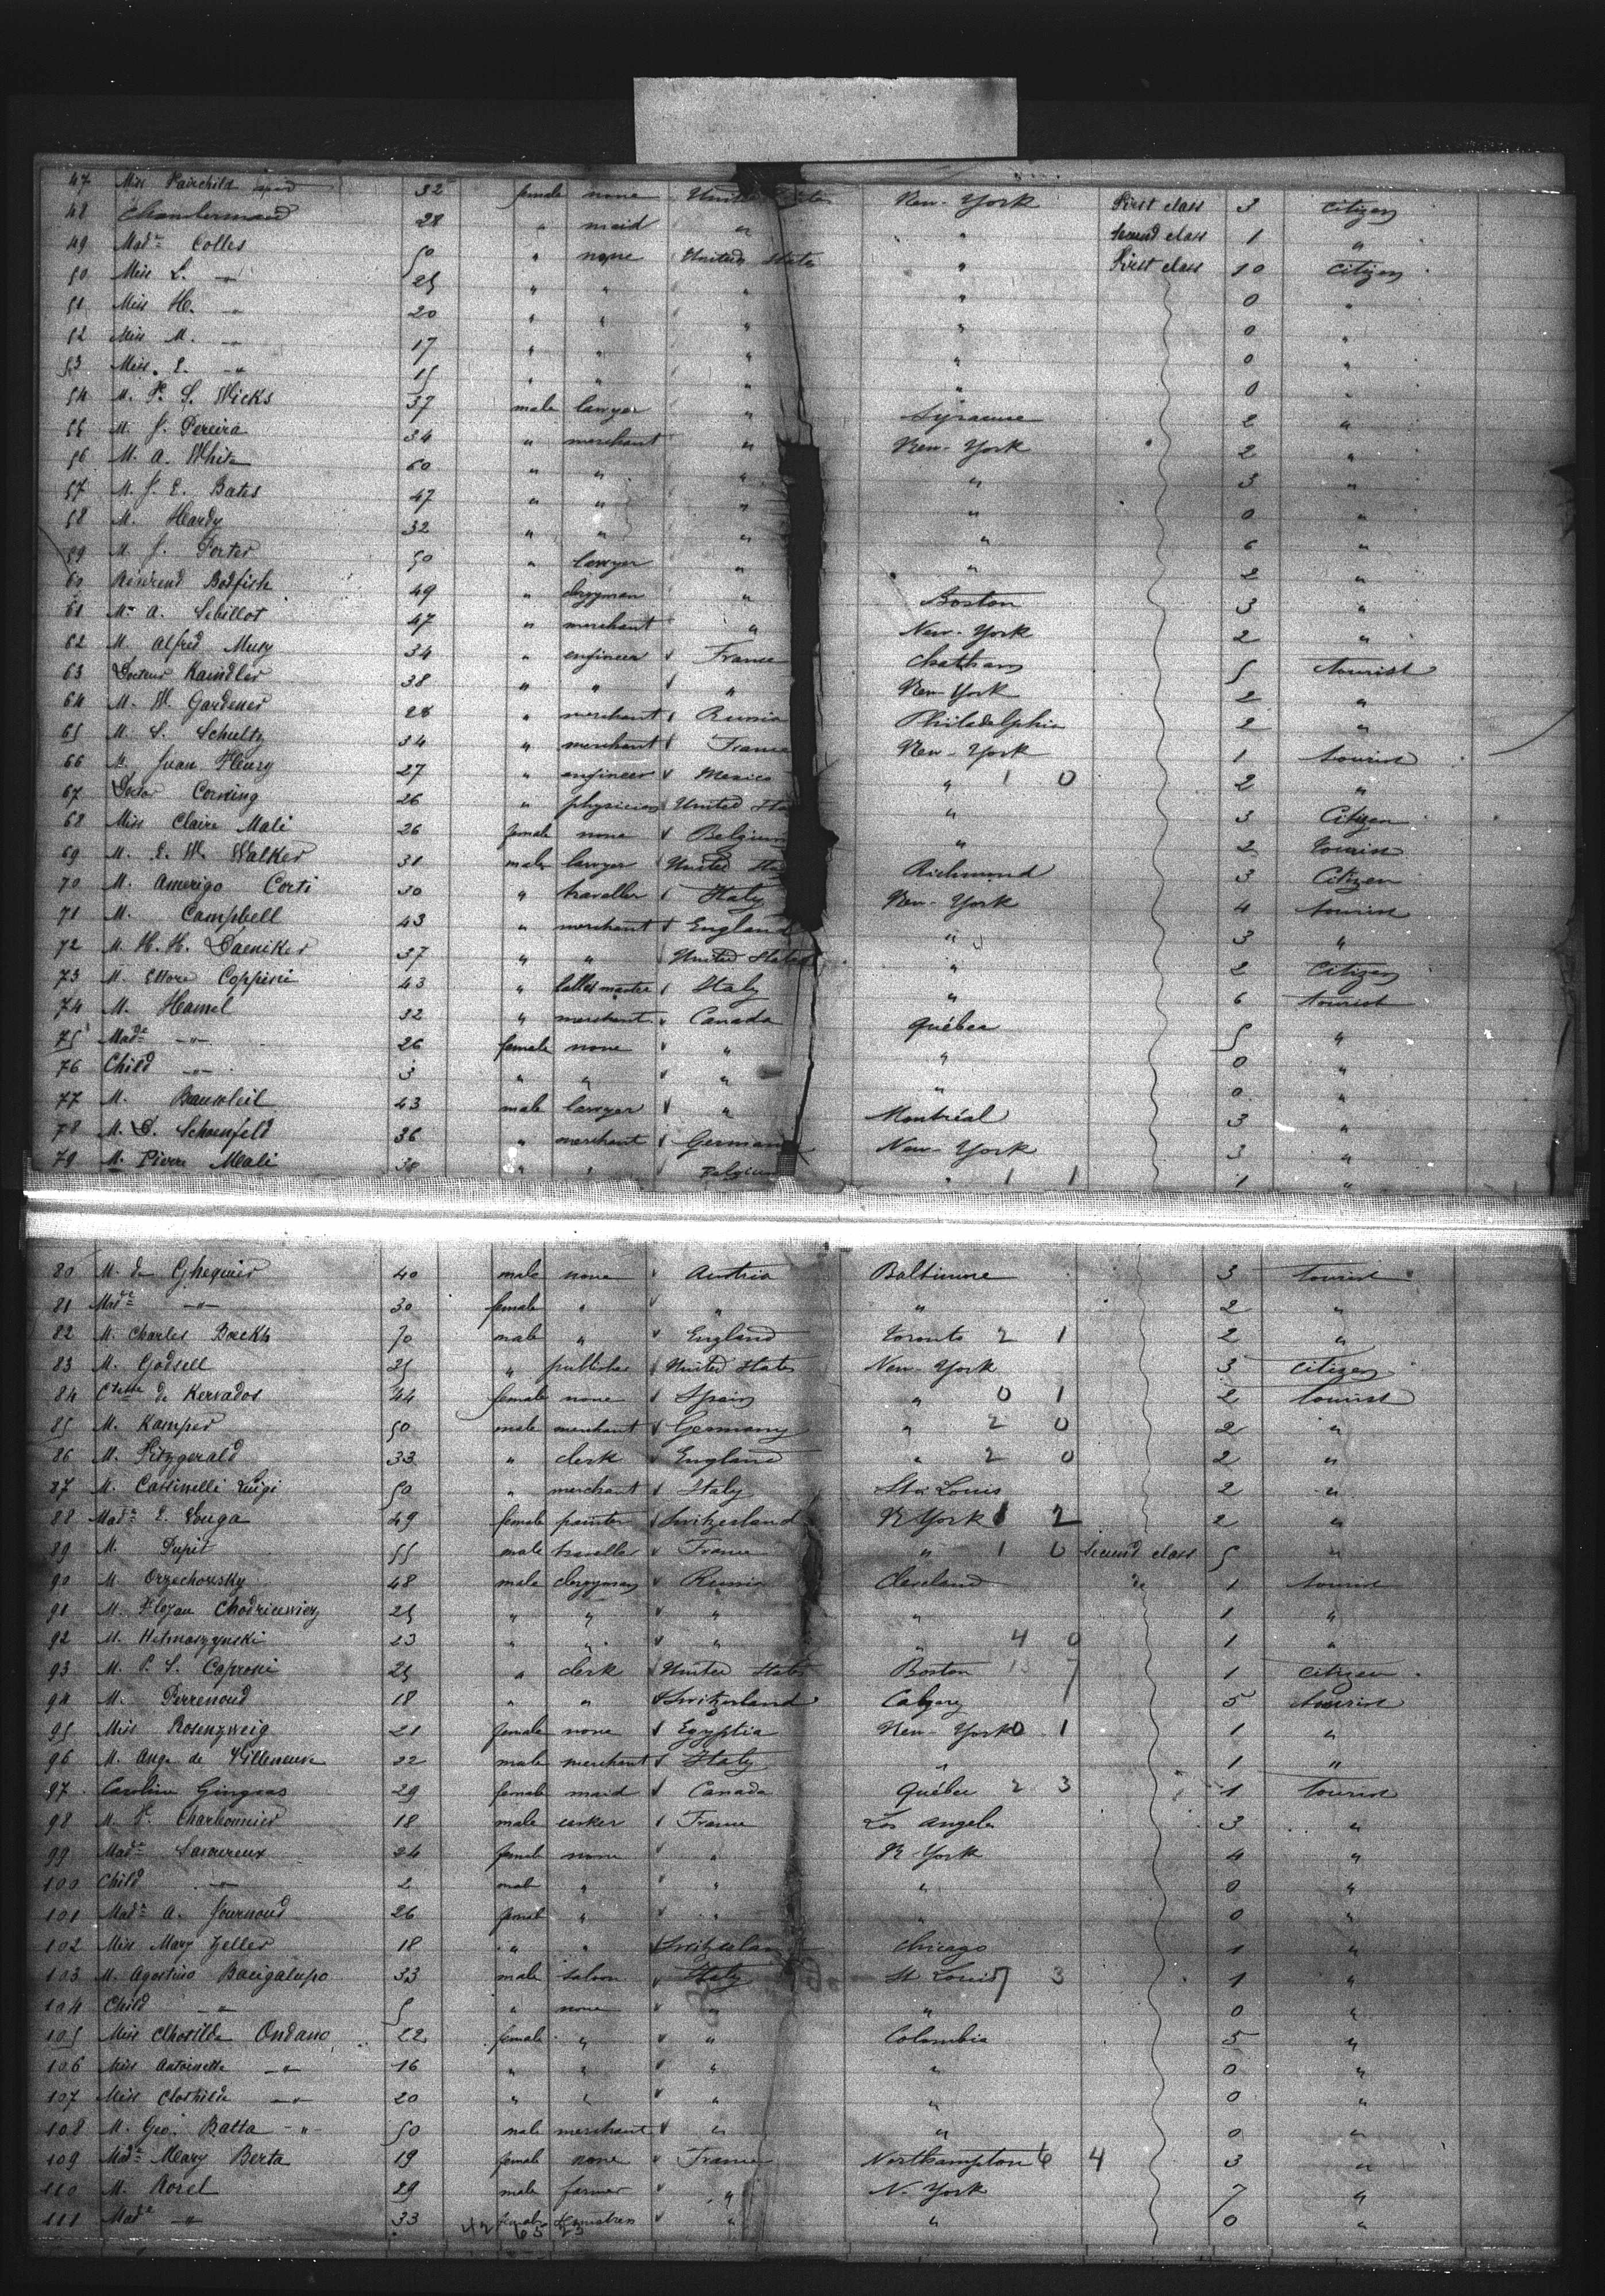 47 Miss Fairchild 32 female none United States New-York First class 3 citizen
48 Chambermaid 28 " maid " " Second class 1 "
49 Mad.e Colles 50 " none United States " First class 10 citizen
50 Miss L. -"- 25 " " " " 0 "
51 Miss H. -"- 20 " " " " 0 "
52 Miss M. -"- 17 " " " " 0 "
53 Miss. E. -"- 15 " " " " 0 "
54 M. P. S. Wicks 37 male lawyer " Syracuse 2 "
55 M. J. Pereira 34 " merchant " New-York 2 "
56 M. A. White 60 " " " " 3 "
57 M. J. E. Bates 47 " " " " 0 "
58 M. Hardy 32 " " " " 6 "
59 M. J. Porter 50 " lawyer " " 2 "
60 Reverend Bodfish 49 " clergyman " Boston 3 "
61 Mr A. Sebillot 47 " merchant " New-York 2 "
62 M. Alfred Musy 34 " engineer v France Chatham 5 tourist
63 Docteur Kaindler 38 " " v " New York 2 "
64 M. W. Gardener 28 " merchant v Russia Philadelphia 2 "
65 M. S. Schultz 34 " merchant v France New-York 1 tourist
66 M. Juan Fleury 27 " engineer v Mexico " 1 0 2 "
67 Doctor Corning 26 " physician United Sta " 3 Citizen
68 Miss Claire Mali 26 female none v Belgium " 2 tourist
69 M. E. W. Walker 31 male lawyer United Sta Richmond 3 Citizen
70 M. Amerigo Corti 30 " traveller v Italy New-York 4 tourist
71 M. Campbell 43 " merchant v England " 3 "
72 M. H. H. Daeniker 37 " " United States " 2 Citizen
73 M. Ettore Coppini 43 " ballet master v Italy " 6 tourist
74 M. Hamel 32 " merchant v Canada Québec 5 "
75 Mad.e -"- 26 female none v " " 0 "
76 Child -"- 3 " " v " " 0 "
77 M. 43 male lawyer v " Montréal 3 "
78 M. D. Schoenfeld 36 " merchant v Germany New-York 3 "
79 M. Pierre Mali 38 " " v Belgium " 1 1 1 "
80 M. de Ghequier 40 male none v Austria Baltimore 3 tourist
81 Mad.e -"- 30 female " v " " 2 "
82 M. Charles Boeckh 70 male " v England Toronto 2 1 2 "
83 M. Godsell 25 " publisher United States New-York 3 citizen
84 Ctesse de Kervados 44 female none v Spain " 0 1 2 tourist
85 M. Kamper 50 male merchant v Germany " 2 0 2 "
86 M. Fitzgerald 33 " clerk v England " 2 0 2 "
87 M. Cassinelli Luigi 50 " merchant v Italy St Louis 2 "
88 Mad.e E. Vouga 49 female painter v Switzerland N York 1 2 2 "
89 M. Dupit 55 male traveller v France " 1 0 Second class 5 "
90 M. Orzechowsky 48 male clergyman v Russia Cleveland de 1 tourist
91 M. Flojan Chodriewiez 25 " " v " " 1 "
92 M. Hetmaszynski 23 " " v " " 4 0 1 "
93 M. P. S. Caproni 25 " clerk United States Boston 13 7 1 citizen
94 M. Perrenoud 18 " " v Switzerland Calgary 5 tourist
95 Miss Rosenzweig 21 female none v Egyptia New-York 0 1 1 "
96 M. Ange de Villeneuve 22 male merchant v Italy " 1 "
97 Caroline Gingras 29 female maid v Canada Québec 2 3 1 tourist
98 M. F. Charbonnier 18 male v France Los Angeles 3 "
99 Mad.e Savoureux 24 female none v " N York 4 "
100 Child -"- 2 male " v " " 0 "
101 Mad.e A. Journoud 26 femal " v " " 0 "
102 Miss Mary Zeller 18 " " v Switzerland Chicago 1 "
103 M. Agostino Bacigalupo 33 male saloon v Italy St Louis 7 3 1 "
104 Child -"- 5 " none v " " 0 "
105 Miss Clotilde Ondano 22 female " v " Colombia 5 "
106 Miss Antoinette -"- 16 " " v " " 0 "
107 Miss Clothilde -"- 20 " " v " " 0 "
108 M. Geo. Batta -"- 50 male merchant v " " 0 "
109 Mad.e Mary Berta 19 female none v France Northampton 6 4 3 "
110 M. Rorel 29 male farmer v " N. York 7 "
111 Mad.e -"- 33 female v " " 0 "
42 65 23